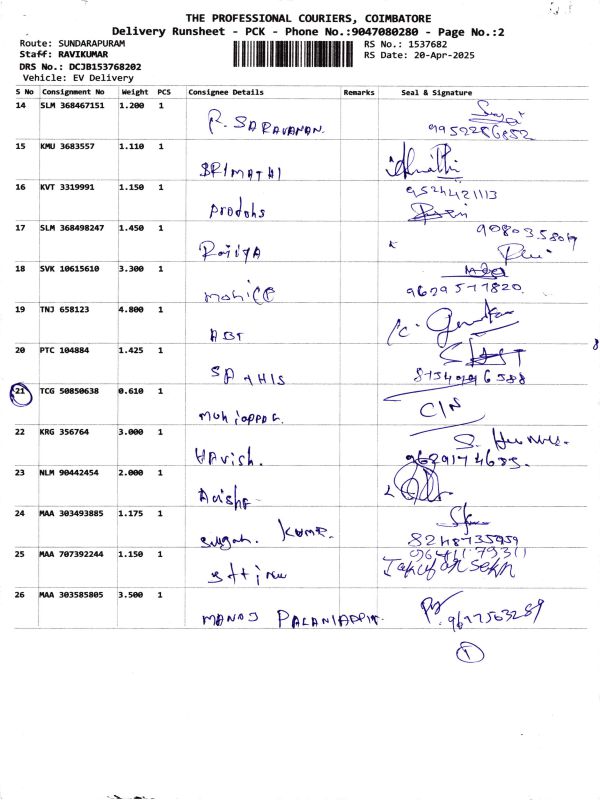 THE PROFESSIONAL COURIERS, COIMBATORE
Delivery Runsheet - PCK - Phone No.:9047080280 - Page No.:2
Route: SUNDARAPURAM RS No.: 1537682
Staff: RAVIKUMAR RS Date: 20-Apr-2025
DRS No.: DCJB153768202
Vehicle: EV Delivery
S No Consignment No Weight PCS Consignee Details Remarks Seal & Signature
14 SLM 368467151 1.200 1
R. SARAVANAN. 9952286852
15 KMU 3683557 1.110 1
SRIMATHI
16 KVT 3319991 1.150 1 9524421113
17 SLM 368498247 1.450 1 9080358019
18 SVK 10615610 3.300 1
9629577820
19 TNJ 658123 4.800 1
ABT
20 PTC 104884 1.425 1
21 TCG 50850638 0.610 1
22 KRG 356764 3.000 1
Harish. 9629174685.
23 NLM 90442454 2.000 1
24 MAA 303493885 1.175 1
25 MAA 707392244 1.150 1
26 MAA 303585805 3.500 1
MANOJ PALANIAPPA. 9677563289
1